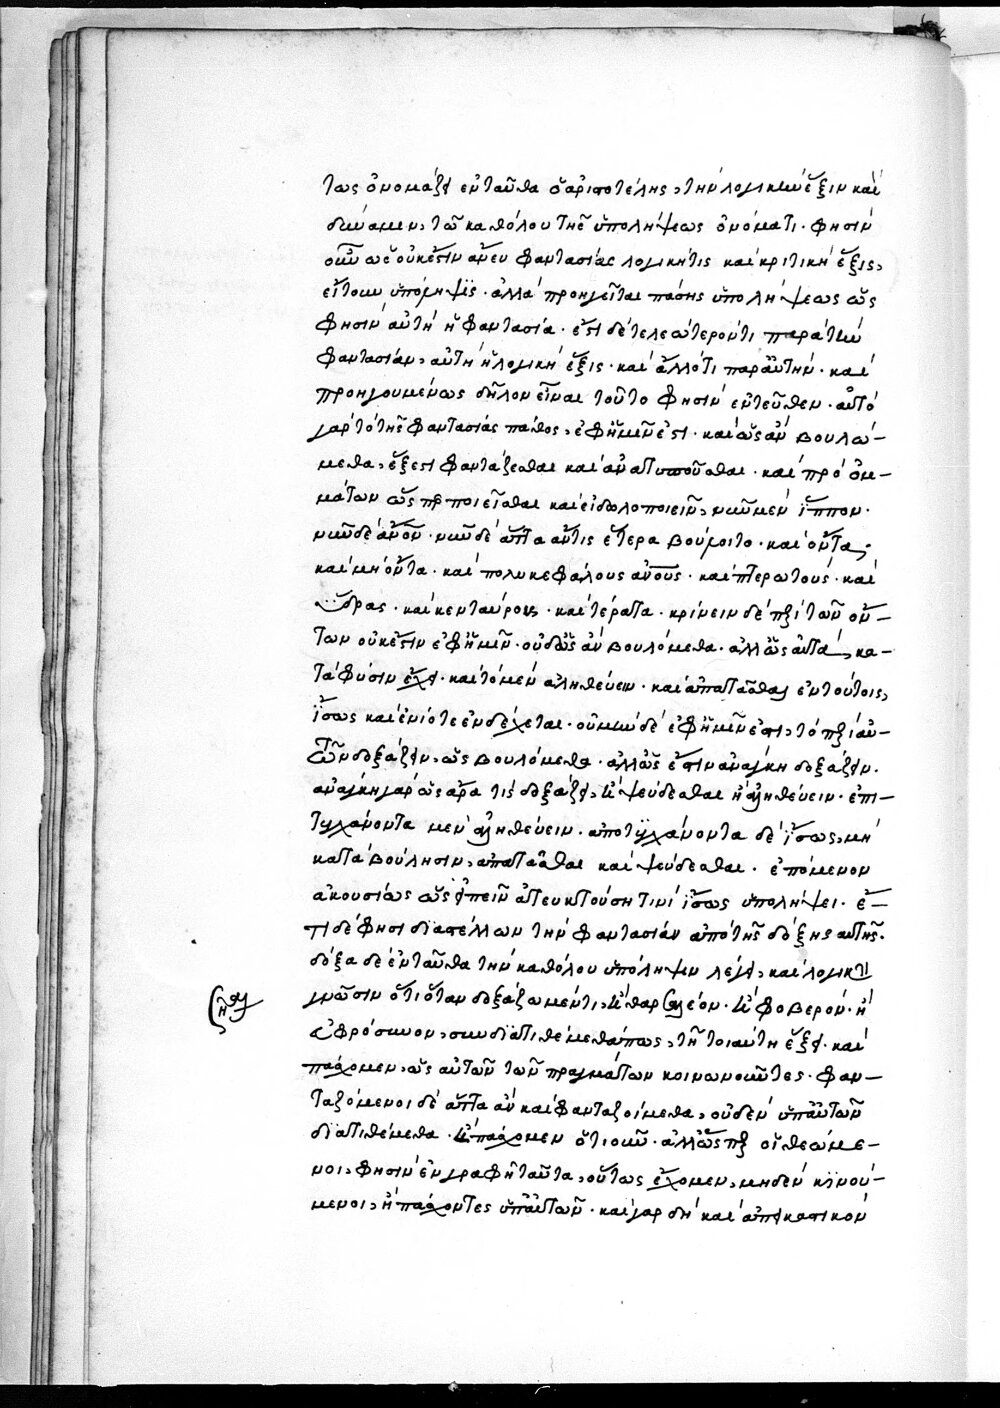 τως ὀνομάζει ἐνταῦθα ὁ ἀριστοτέλης, τὴν λογικὴν ἕξιν καὶ
δύναμιν, τῷ καθόλου τῆς ὑπολήψεως ὀνόματι. φησὶν
οὖν ὡς οὐκ ἔστιν ἄνευ φαντασίας λογική τις καὶ κριτικὴ ἕξις,
εἴτουν ὑπόληψις. ἀλλὰ προηγεῖται πάσης ὑπολήψεως ὥς
φησιν αὐτὴ ἡ φαντασία. ἔστι δὲ τελεώτερόν τι παρὰ τὴν
φαντασίαν, αὐτὴ ἡ λογικὴ ἕξις. καὶ ἄλλό τι παρ' αὐτήν. καὶ
προηγουμένως δῆλον εἶναι τοῦτο φησὶν ἐντεῦθεν. αὐτὸ
γὰρ τὸ τῆς φαντασίας πάθος, ἐφ' ἡμῖν ἐστι. καὶ ὡς ἂν βουλώ-
μεθα, ἔξεστι φαντάζεσθαι καὶ ἀνατυποῦσθαι. καὶ πρὸ ὀμ-
μάτων ὥσπερ ποιεῖσθαι καὶ εἰδωλοποιεῖν, νῦν μὲν ἵππον.
νῦν δὲ ἄνον. νῦν δὲ ἄττα ἄν τις ἕτερα βούλοιτο. καὶ ὄντα,
καὶ μὴ ὄντα. καὶ πολυκεφάλους ἀνους. καὶ πτερωτούς. καὶ
ὕδρας. καὶ κενταύρους. καὶ τέρατα. κρίνειν δὲ περὶ τῶν ὄν-
των οὐκ ἔστιν ἐφ' ἡμῖν. οὐδ' ὡς ἂν βουλόμεθα. ἀλλ' ὡς αὐτὰ, κα-
τὰ φύσιν ἔχει. καὶ τὸ μὲν ἀληθεύειν. καὶ ἀπατᾶσθαι ἐν τούτοις,
ἴσως καὶ ἐνίοτε ἐνδέχεται. οὐ μὴν δὲ ἐφ' ἡμῖν ἐστι, τὸ περὶ αὐ-
τῶν δοξάζειν, ὡς βουλόμεθα. ἀλλ' ὡς ἔστιν ἀνάγκη δοξάζειν.
ἀνάγκη γὰρ ὡς ἄρα τις δοξάζει, ἢ ψεύδεσθαι ἢ ἀληθεύειν. ἐπι-
τυγχάνοντα μὲν ἀληθεύειν. ἀποτυγχάνοντα δὲ ἴσως, μὴ
κατὰ βούλησιν, ἀπατᾶσθαι καὶ ψεύδεσθαι. ἑπόμενον
ἀκουσίως ὡς εἰπεῖν ἀτευκτούσῃ τινὶ ἴσως ὑπολήψει. ἔ-
τι δέ φησι διαστέλλων τὴν φαντασίαν ἀπὸ τῆς δόξης αὐτῆς.
δόξα δὲ ἐνταῦθα τὴν καθόλου ὑπόληψιν λέγει, καὶ λογικὴν
γνῶσιν ὅτι ὅταν δοξάζωμέν τι, ἢ θαρσαλέον. ἢ φοβερόν. ἢ
εὐφρόσυνον, συνδιατιθέμεθά πως, τῇ τοιαύτῃ ἕξει. καὶ
πάσχομεν, ὡς αὐτῶν τῶν πραγμάτων κοινωνοῦντες. φαν-
ταζόμενοι δὲ ἅττα ἂν καὶ φανταζοίμεθα, οὐδὲν ὑπ' αὐτῶν
διατιθέμεθα. ἢ πάσχομεν ὁτιοῦν. ἀλλ' ὥσπερ οἱ θεώμε-
νοι, φησὶν ἐν γραφῇ ταῦτα, οὕτως ἔχομεν, μηδὲν κινού-
μενοι, ἢ πάσχοντες ὑπ' αὐτῶν. καὶ γὰρ δὴ καὶ ἀπεικαστικὸν